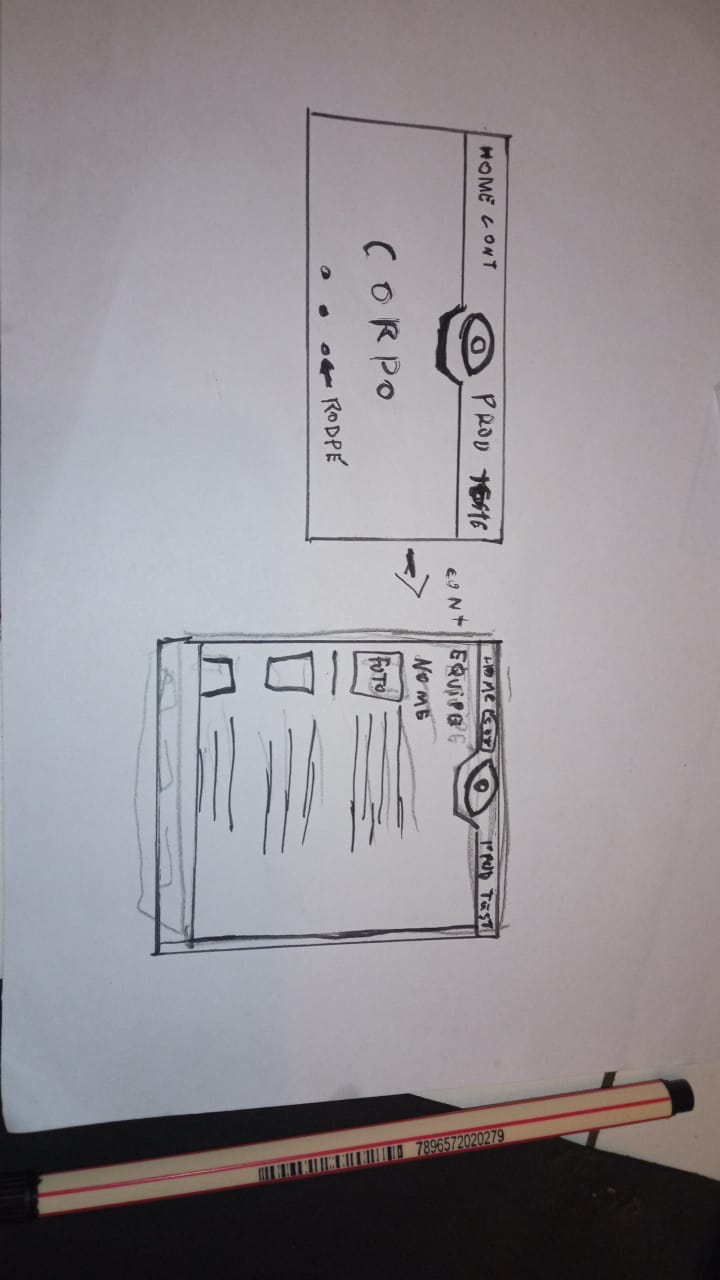 HOME CONT PROD TESTE
CORPO
RODPÉ
CONT
HOME CONT PROD TEST
EQUIPE
NOME
FOTO
7896572020279